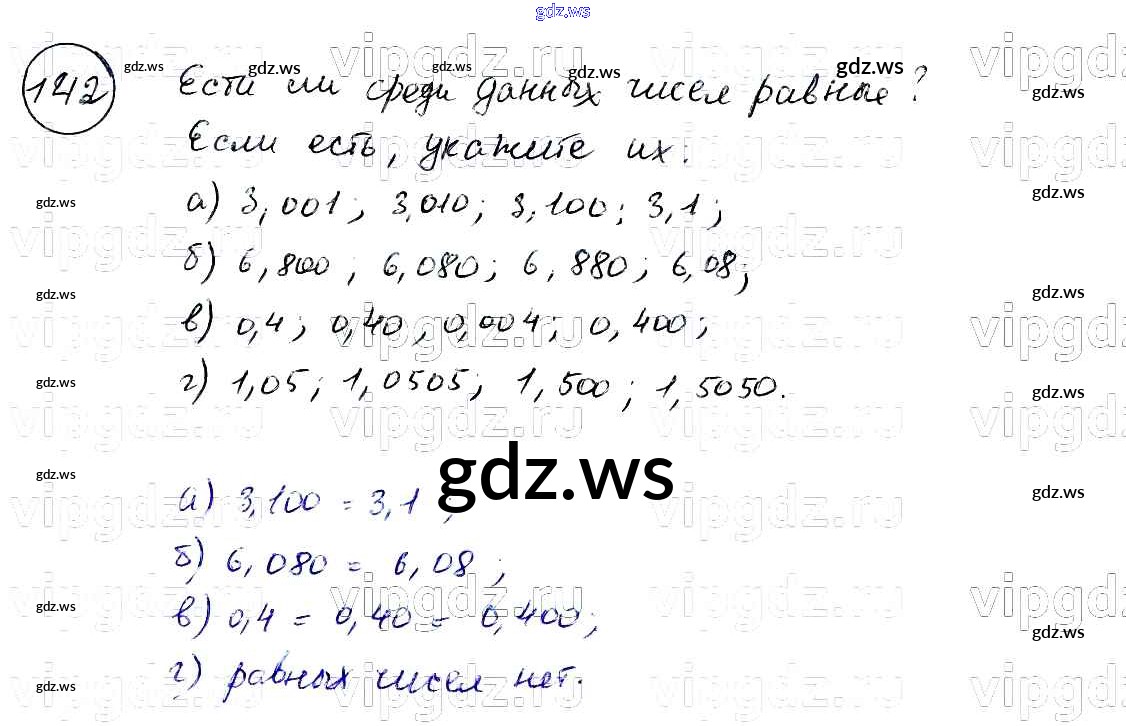 gdz.ws
142 Есть ли среди данных чисел равные?
Если есть, укажите их:
а) 3,001; 3,010; 3,100; 3,1;
б) 6,800; 6,080; 6,880; 6,08;
в) 0,4; 0,40; 0,004; 0,400;
г) 1,05; 1,0505; 1,500; 1,5050.
gdz.ws
а) 3,100 = 3,1;
б) 6,080 = 6,08;
в) 0,4 = 0,40 = 0,400;
г) равных чисел нет.